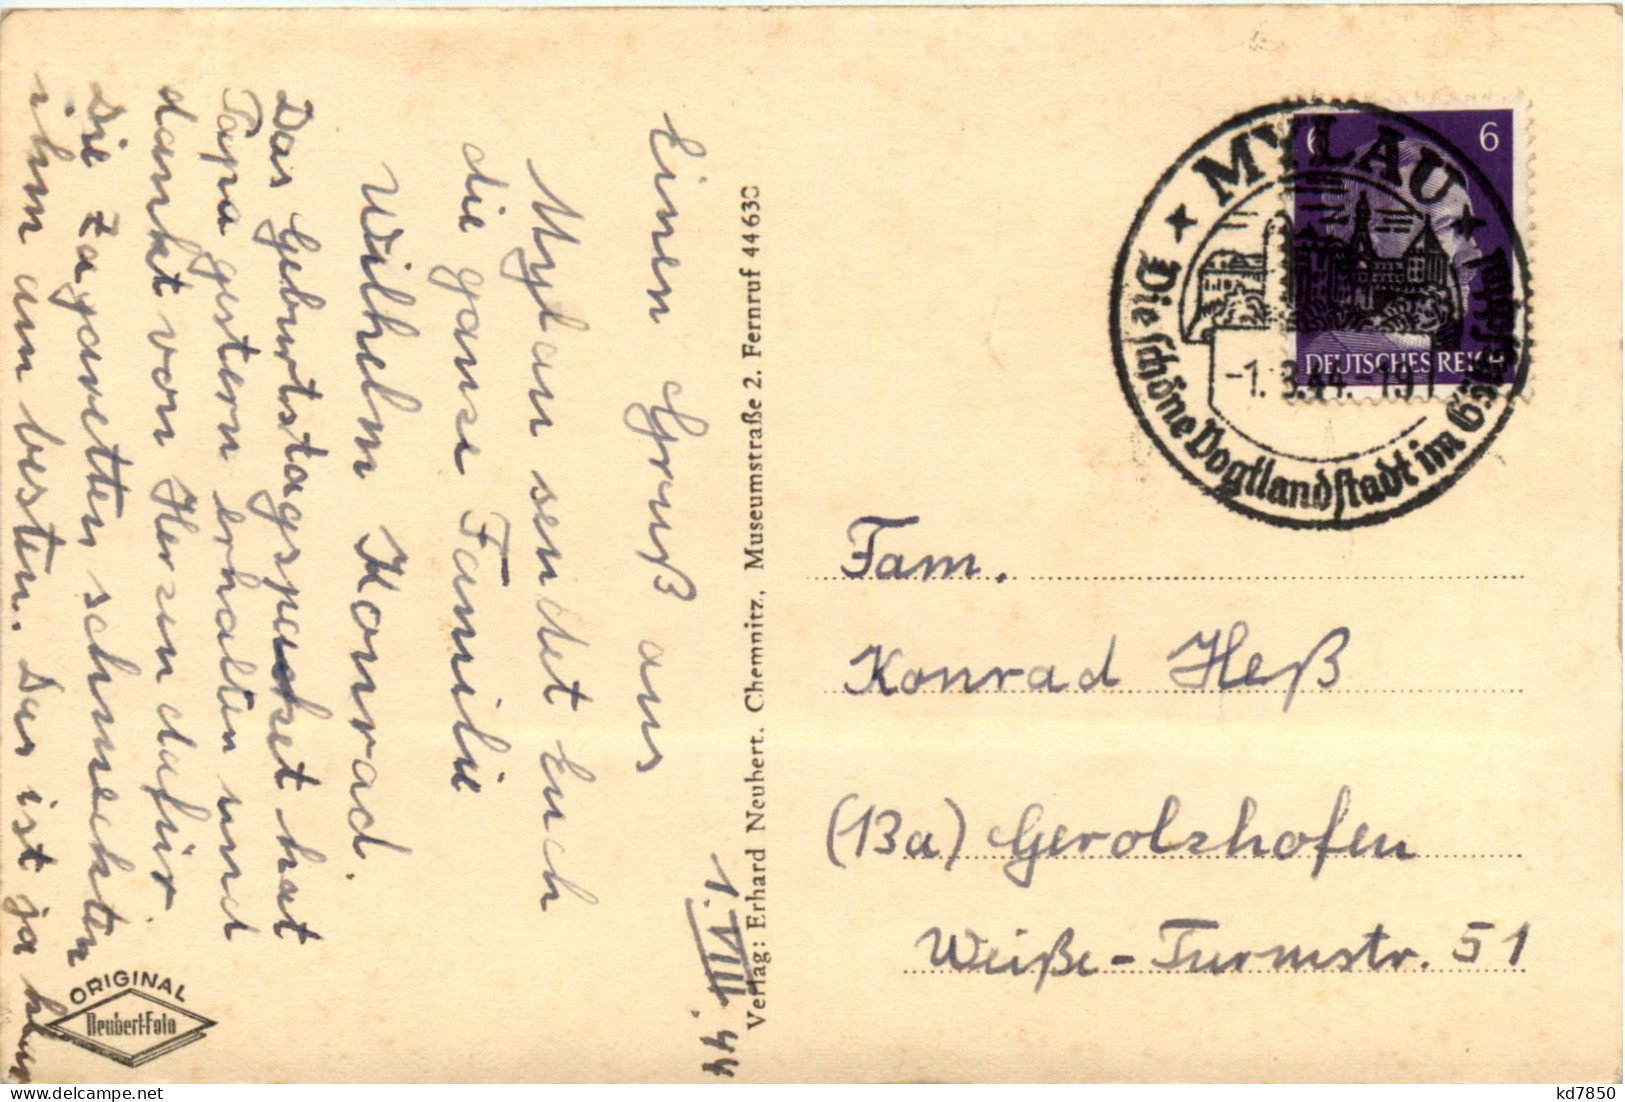 1. VIII. 44
Einen Gruß aus
Mylau sendet Euch
die ganze Familie
Wilhelm Konrad.
Das Geburtstagspacket hat
Papa gestern erhalten und
dankt von Herzen dafür
Die Zagaretten schmeckten
ihm am besten. Das ist ja
ORIGINAL
Neubert-Foto
Verlag: Erhard Neubert, Chemnitz, Museumstraße 2. Fernruf 44630
6 6
DEUTSCHES REICH
MYLAU
Die schöne Vogtlandstadt im
-1. 8.44.-19
Fam.
Konrad Heß
(13a) Gerolzhofen
Weiße-Turmstr. 51
kd7850